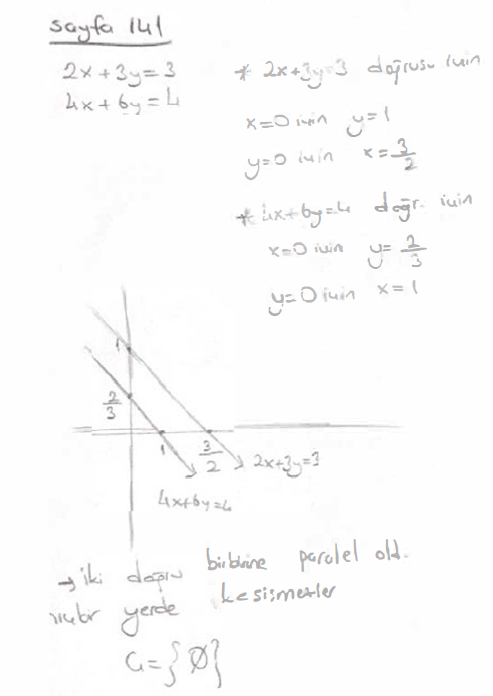 sayfa 141
2x+3y=3
4x+6y=4
* 2x+3y=3 doğrusu için
x=0 için y=1
y=0 için x=3/2
* 4x+6y=4 doğr. için
x=0 için y=2/3
y=0 için x=1
1
2/3
1
3/2
2x+3y=3
4x+6y=4
→ iki doğru birbirine paralel old.
hiçbir yerde kesişmezler
Ç={∅}